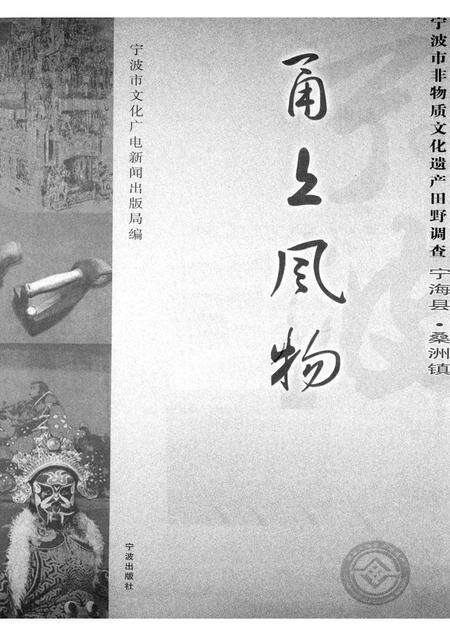 宁波市非物质文化遗产田野调查 宁海县·桑洲镇
甬上风物
宁波市文化广电新闻出版局编
宁波出版社